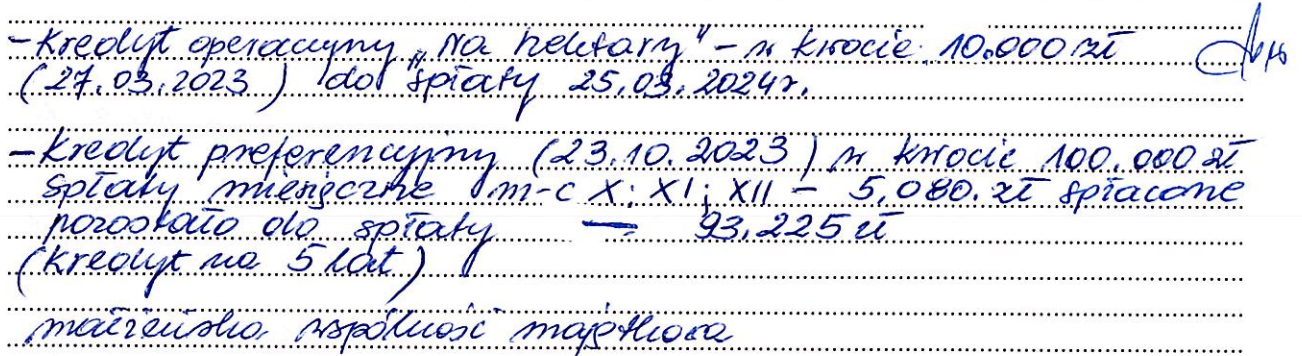 - Kredyt operacyjny „Na hektary" - w kwocie 10.000 zł
(27.03.2023) do spłaty 25.03.2024r.
- Kredyt preferencyjny (23.10.2023) w kwocie 100.000 zł
spłaty miesięczne m-c X; XI; XII - 5,080. zł spłacone
pozostało do spłaty — 93.225 zł
(kredyt na 5 lat)
małżeńska wspólność majątkowa